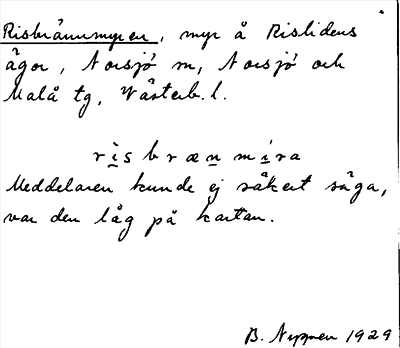 Risbrännmyren, myr å Rislidens
ägor, Norsjö sn, Norsjö och
Malå tg, Västerb. l.
rìsbrænnmíra
Meddelaren kunde ej säkert säga,
var den låg på kartan.
B. Nygren 1929